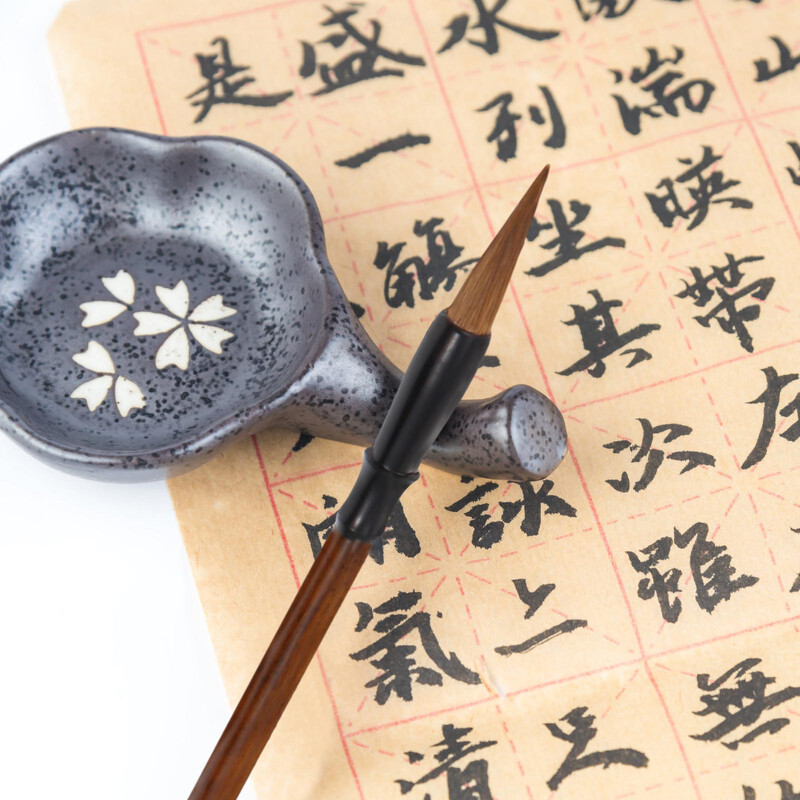 山
湍映帶左
水列坐其次雖無
盛一觴詠亦足
是朗氣清